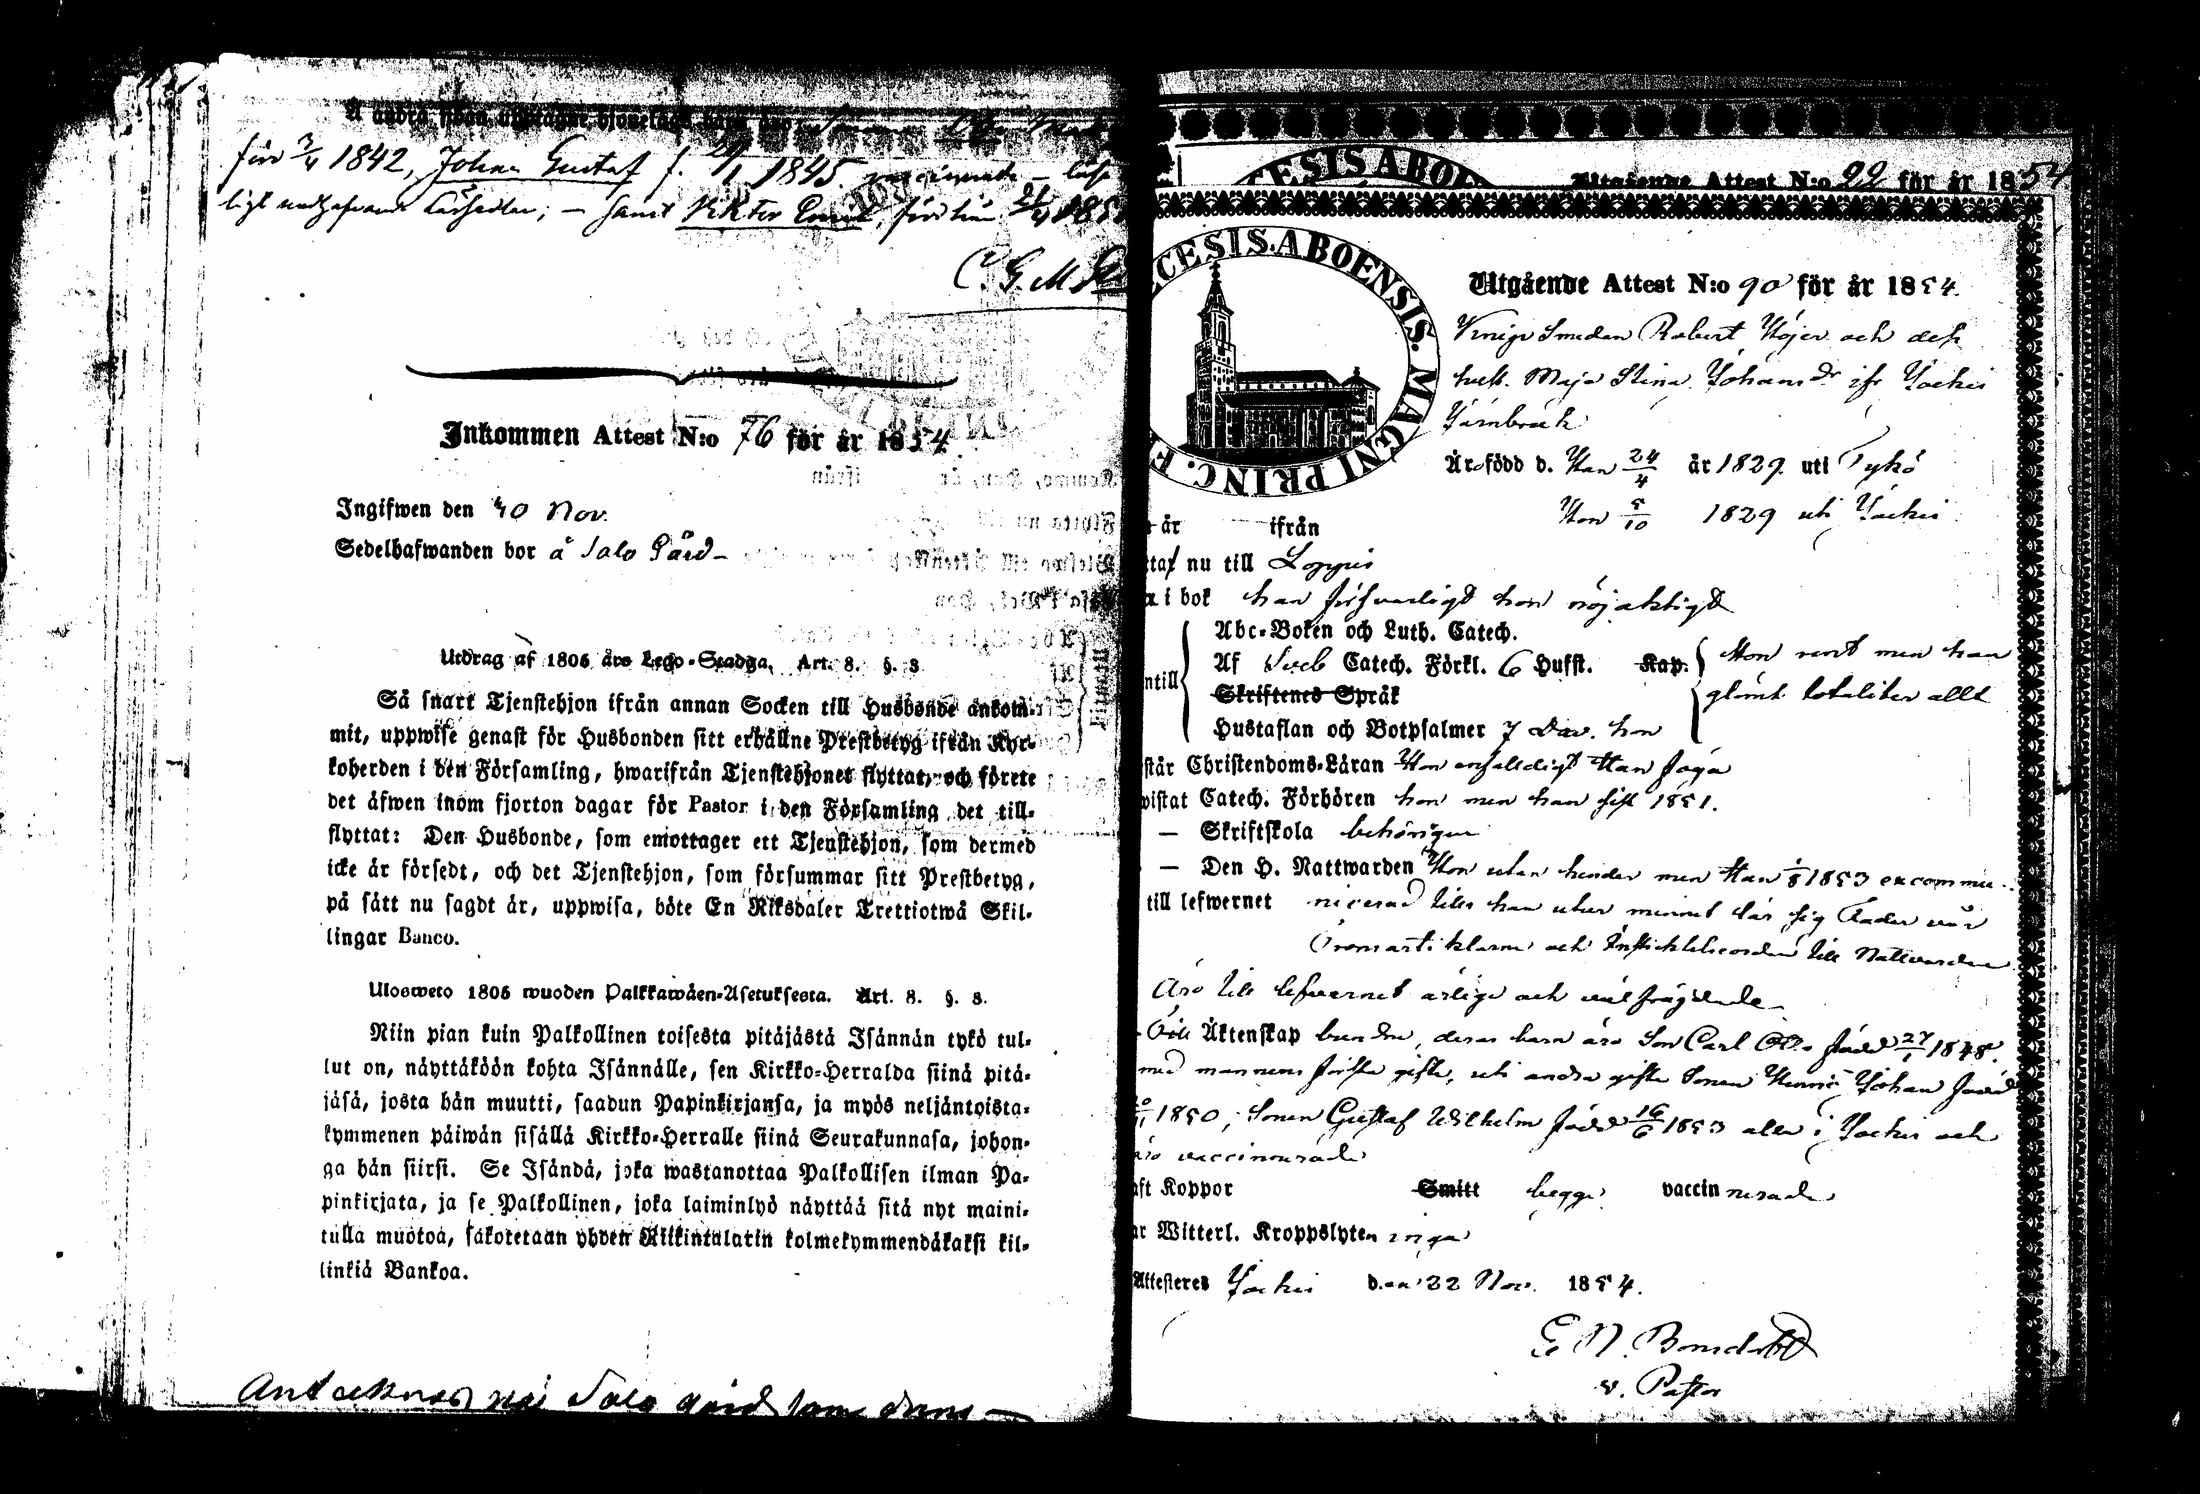 för 3/4 1842, Johan Gustaf f. 1845 vaccinerade
samt Viktor Emil, född den
C. G. M
Inkommen Attest N:o 76 för år 1854.
Ingifwen den 30 Nov.
Sedelhafwanden bor å Salo Gård
Utdrag af 1805 års Lego-Stadga, Art. 8. §. 3
Så snart Tjenstehjon ifrån annan Socken till Husbonde ankom-
mit, uppwise genast för Husbonden sitt erhållne Prestbetyg ifrån Kyr-
koherden i den Församling, hwarifrån Tjenstehjonet flyttat, och förete
det äfwen inom fjorton dagar för Pastor i den Församling det till-
flyttat: Den Husbonde, som emottager ett Tjenstehjon, som dermed
icke är försedt, och det Tjenstehjon, som försummar sitt Prestbetyg,
på sätt nu sagdt är, uppwisa, böte En Riksdaler Trettiotwå Skil-
lingar Banco.
Ulosweto 1805 wuoden Palkkawäen-Asetuksesta. Art. 8. §. 3.
Niin pian kuin Palkollinen toisesta pitäjästä Isännän tykö tul-
lut on, näyttäköön kohta Isännälle, sen Kirkko-Herralda siinä pitä-
jäsä, josta hän muutti, saadun Papinkirjansa, ja myös neljäntoista-
kymmenen päiwän sisällä Kirkko-Herralle siinä Seurakunnasa, johon-
ga hän siirsi. Se Isändä, joka wastanottaa Palkollisen ilman Pa-
pinkirjata, ja se Palkollinen, joka laiminlyö näyttää sitä nyt maini-
tulla muotoa, sakotetaan yhden Riikintalarin kolmekymmendäkaksi kil-
linkiä Bankoa.
Antecknad vid Salo gård
CESIS ABOEN
Utgående Attest N:o 22 för år 1854
CESIS ABOENSIS. MAGNI PRINC. F
Utgående Attest N:o 90 för år 1854.
Smeden Robert Höjer och dess
hust. Maja Stina Johansdr ifr Jockis
Järnbruk
Äro född d. Han 24/4 år 1829 uti Tykö
Hon 5/10 1829 uti Jockis
år ifrån
nu till Loppis
i bok han försvarligt hon nöjaktigt
Abc-Boken och Luth. Catech.
Af Sveb Catech. Förkl. 6 Hufst. Kap. Hon rent men han
ntill Skriftenes Språk glömt totaliter allt
Hustaflan och Botpsalmer 7 Dav. hon
står Christendoms-Läran Hon enfalldigt Han föga
wistat Catech. Förhören hon men han sist 1851.
— Skriftskola behörigen
— Den H. Nattwarden Hon utan hinder men Han 1853 excommu-
till lefwernet nicerad tills han utur minnet lär sig Fader vår
Trosartiklarne och Instichtelseorden till Nattvarden
Äro till lefvernet ärlige och välfrägdade
Till Äktenskap bundne, deras barn äro Son Carl Otto född 27/1 1848.
med mannens första gifte, uti andra gifte Sonen Johan född
1850, Sonen Gustaf Wilhelm född 16/6 1853 alla i Jockis och
äro vaccinerade
aft Koppor Smitt begge vaccinnerade
ar Witterl. Kroppslyten inga
Attesteres Jockis den 22 Nov. 1854.
G N. Bonsdorff
v. Pastor